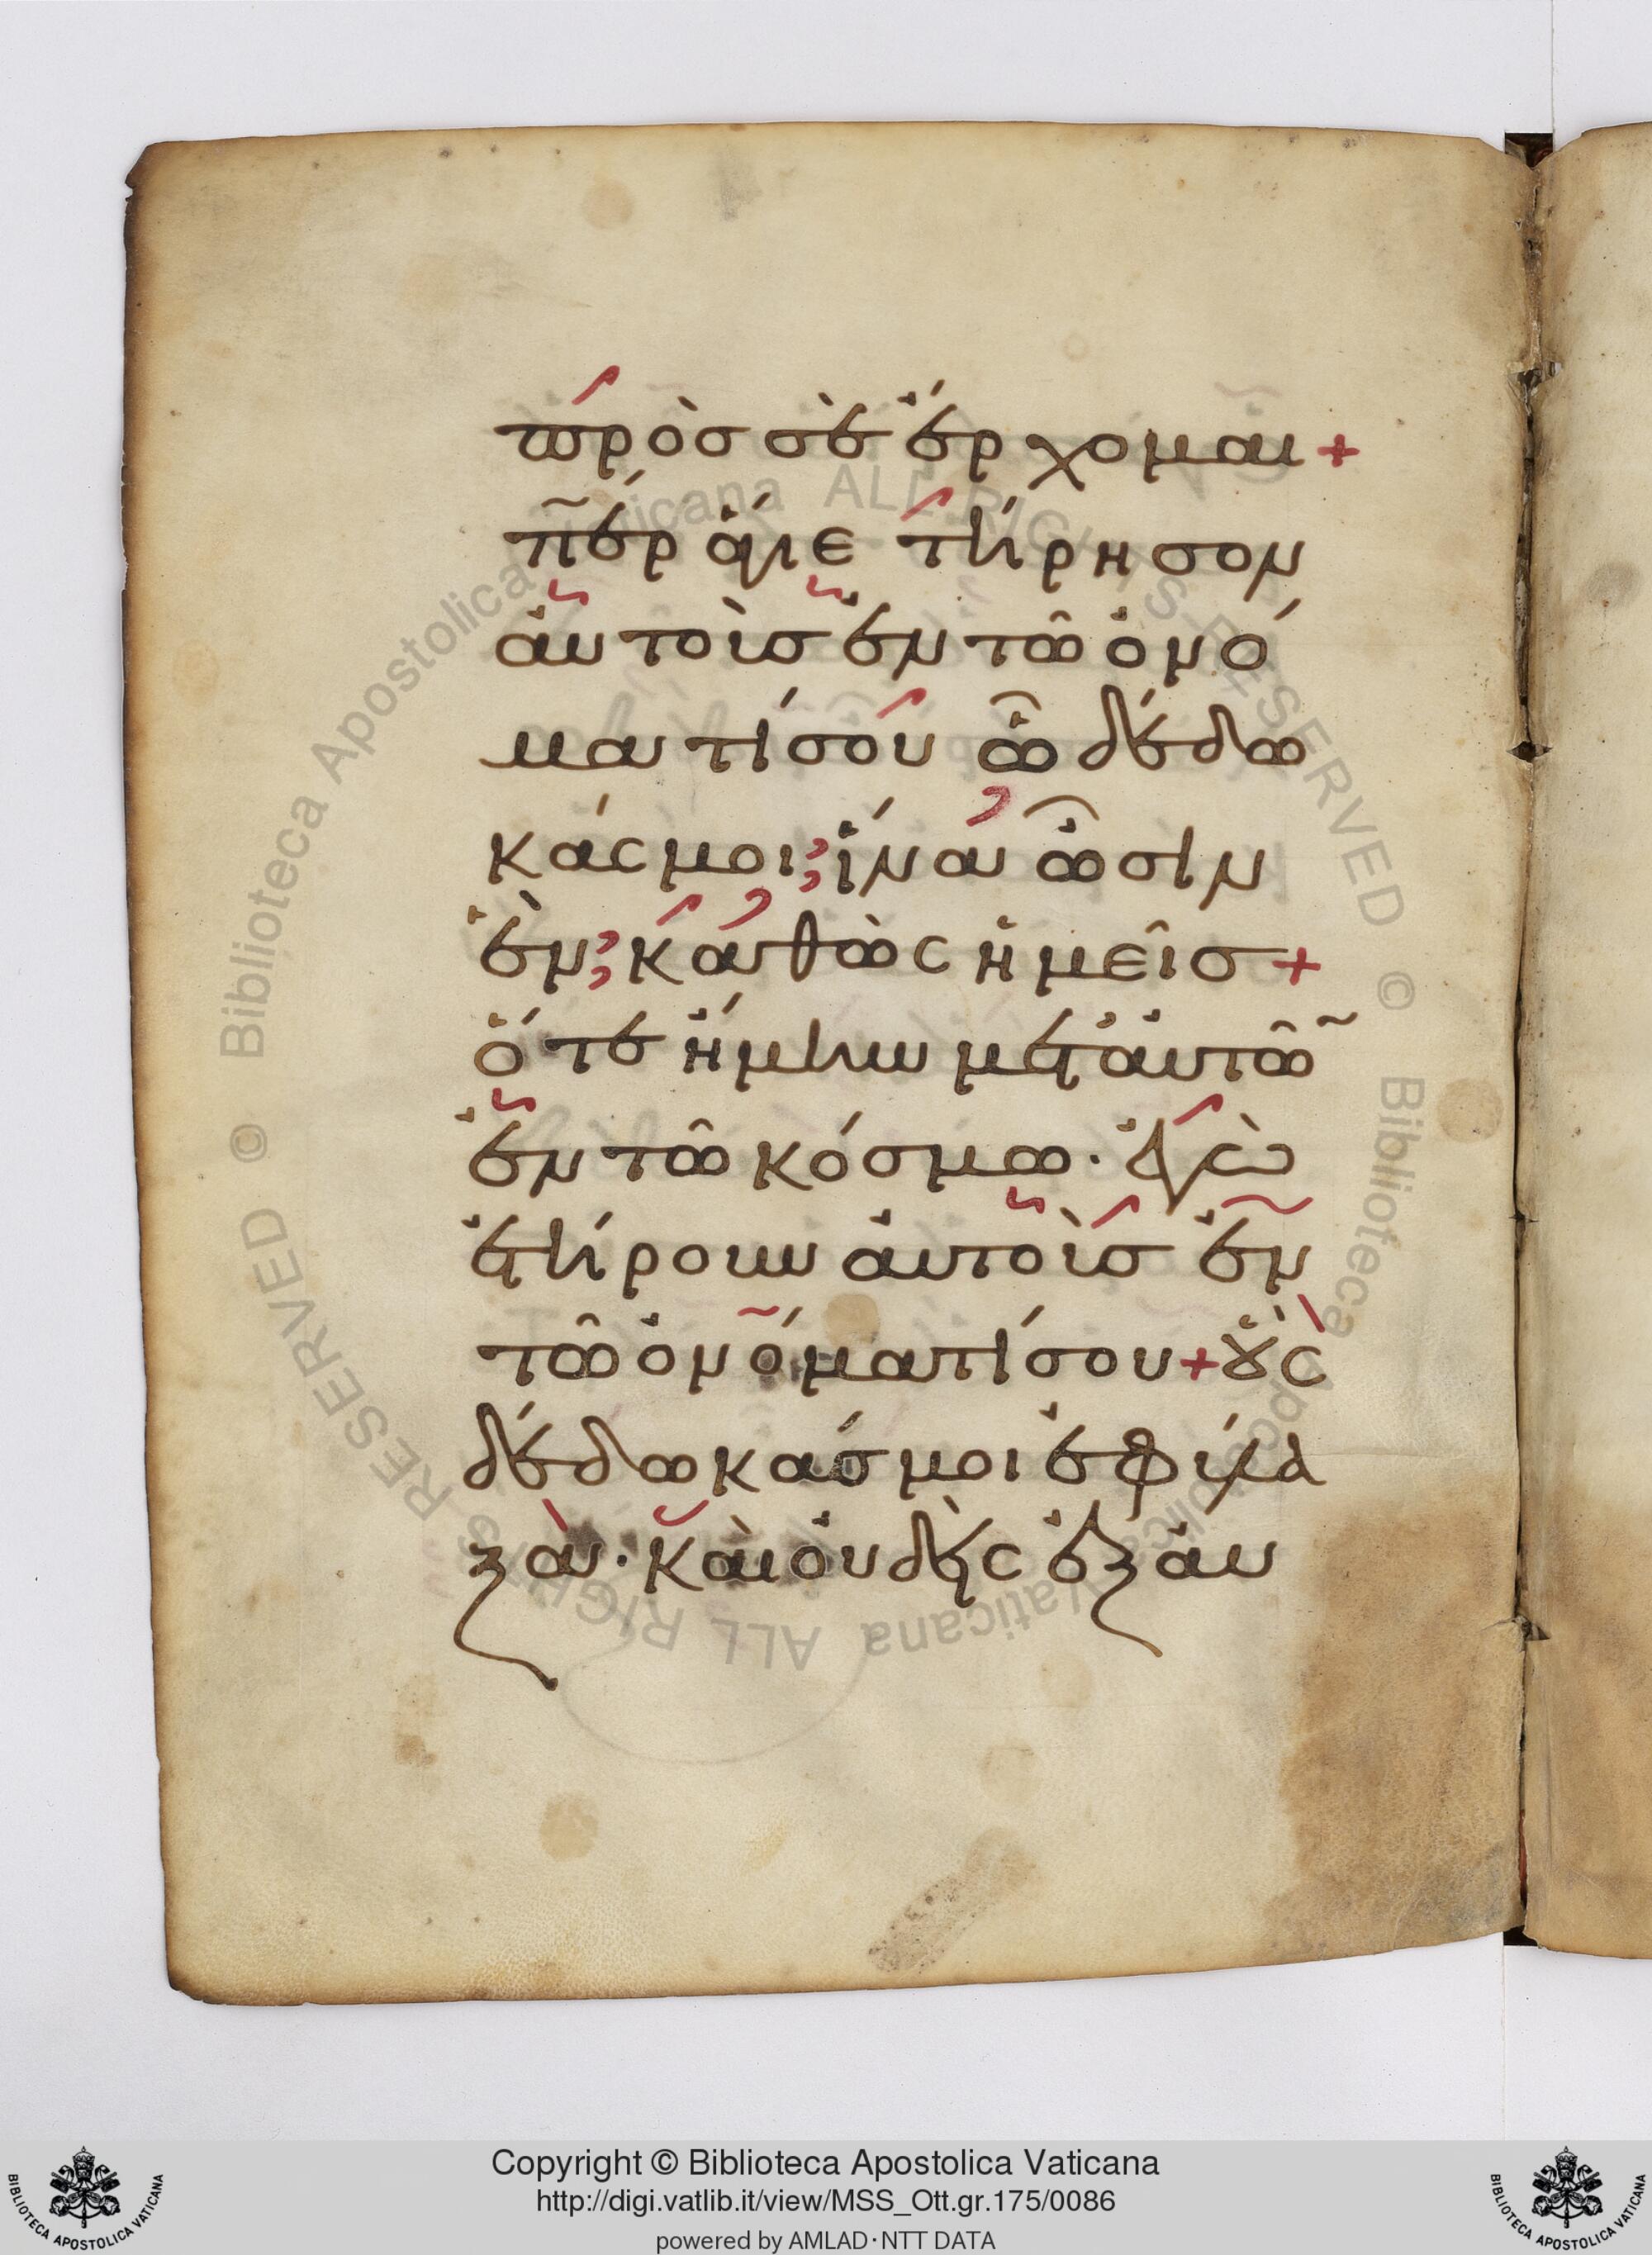 πρὸσ σὲ ἔρχομαι +
περ ἅγιε τήρησον
ἀυτοὶσ ἐν τῶ ὀνό
ματί σου ὧ δέδω
κάς μοι ἵνα ὦσίν
ἓν καθὼς ἡμεῖσ +
ὅτε ἤμην μετ ἀυτῶ
ἐν τῶ κόσμω · ἐγὼ
ἐτήρουν ἀυτοὶσ ἐν
τῶ ὀνόματί σου + οὓς
δέδωκάσ μοι ἐφύλα
ξα · καὶ ὀυδεὶς ἐξ ἀυ
Copyright © Biblioteca Apostolica Vaticana
http://digi.vatlib.it/view/MSS_Ott.gr.175/0086
powered by AMLAD·NTT DATA
BIBLIOTECA APOSTOLICA VATICANA
BIBLIOTECA APOSTOLICA VATICANA
© Biblioteca Apostolica Vaticana ALL RIGHTS RESERVED © Biblioteca Apostolica Vaticana ALL RIGHTS RESERVED